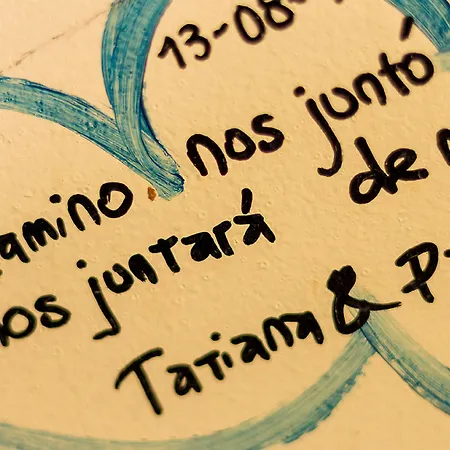 13-08
camino nos juntó
nos juntará de
Tatiana &